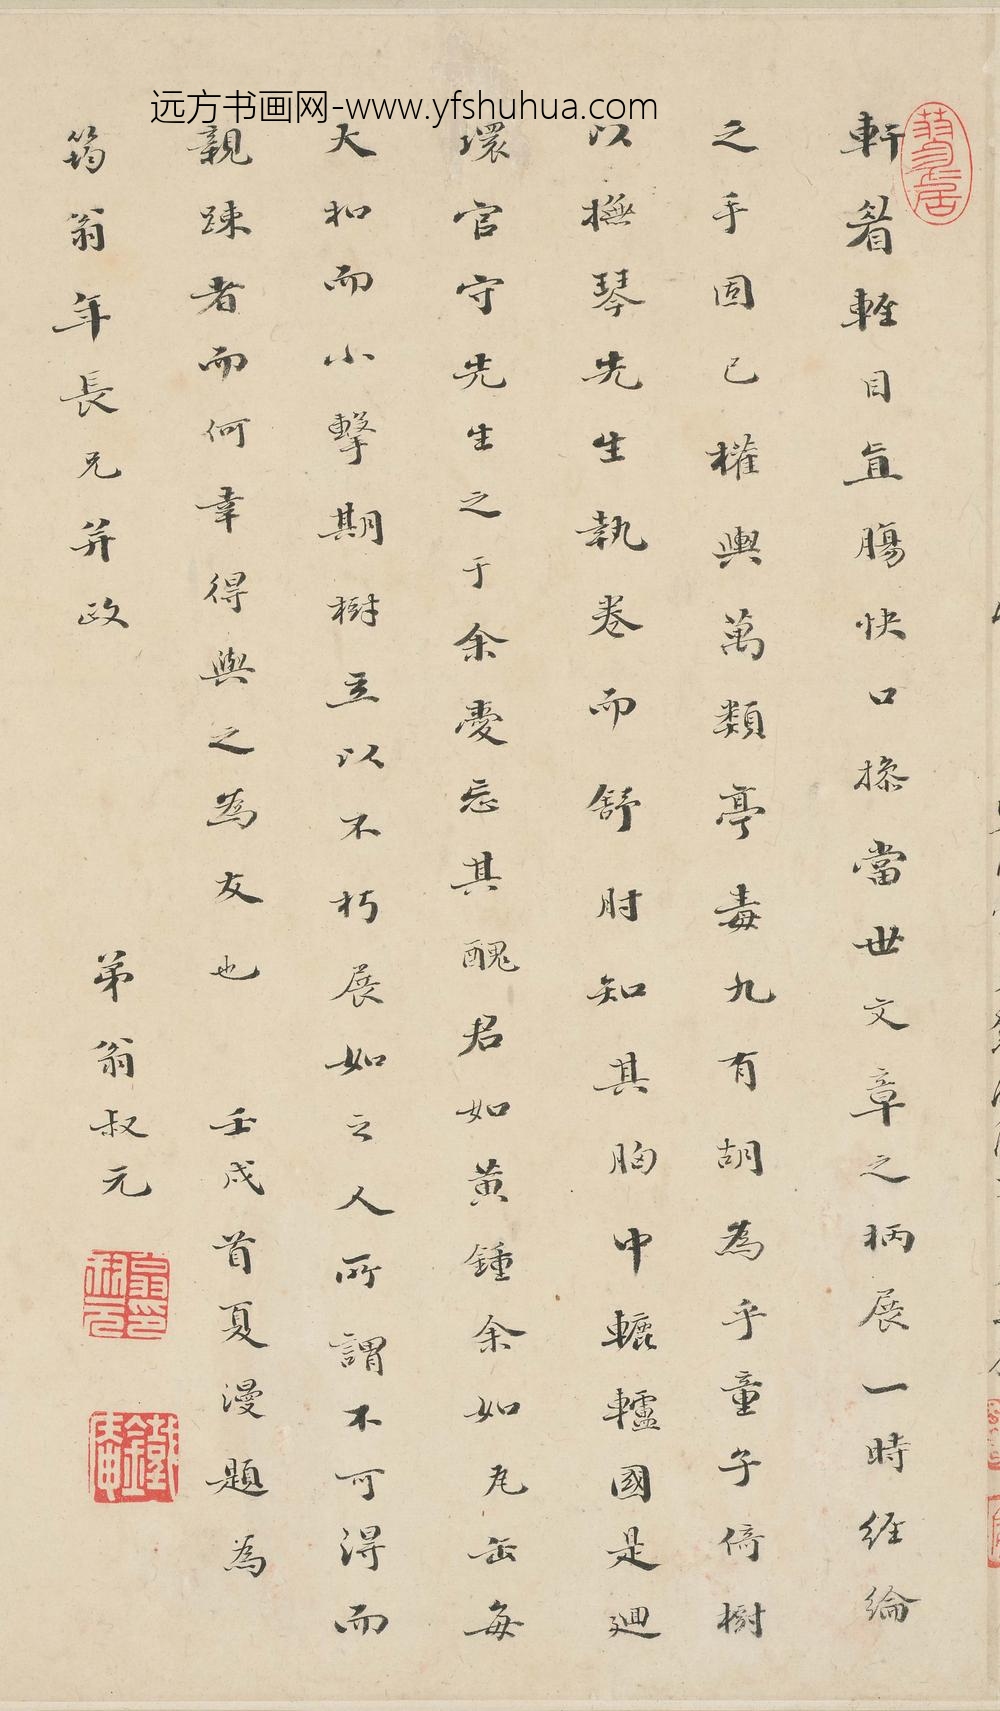 远方书画网-www.yfshuhua.com
軒眉軽目直腸快口操當世文章之柄展一時經綸
之手固已權輿萬類亭毒九有胡為乎童子倚樹
以撫琴先生執卷而舒肘知其胸中轆轤國是迴
環官守先生之于余憂忘其醜君如黃鍾余如瓦缶每
大扣而小擊期樹立以不朽展如之人所謂不可得而
親踈者而何幸得與之為友也 壬戌首夏漫題為
筠翁年長兄并政 弟翁叔元
翁叔元印
鐵庵